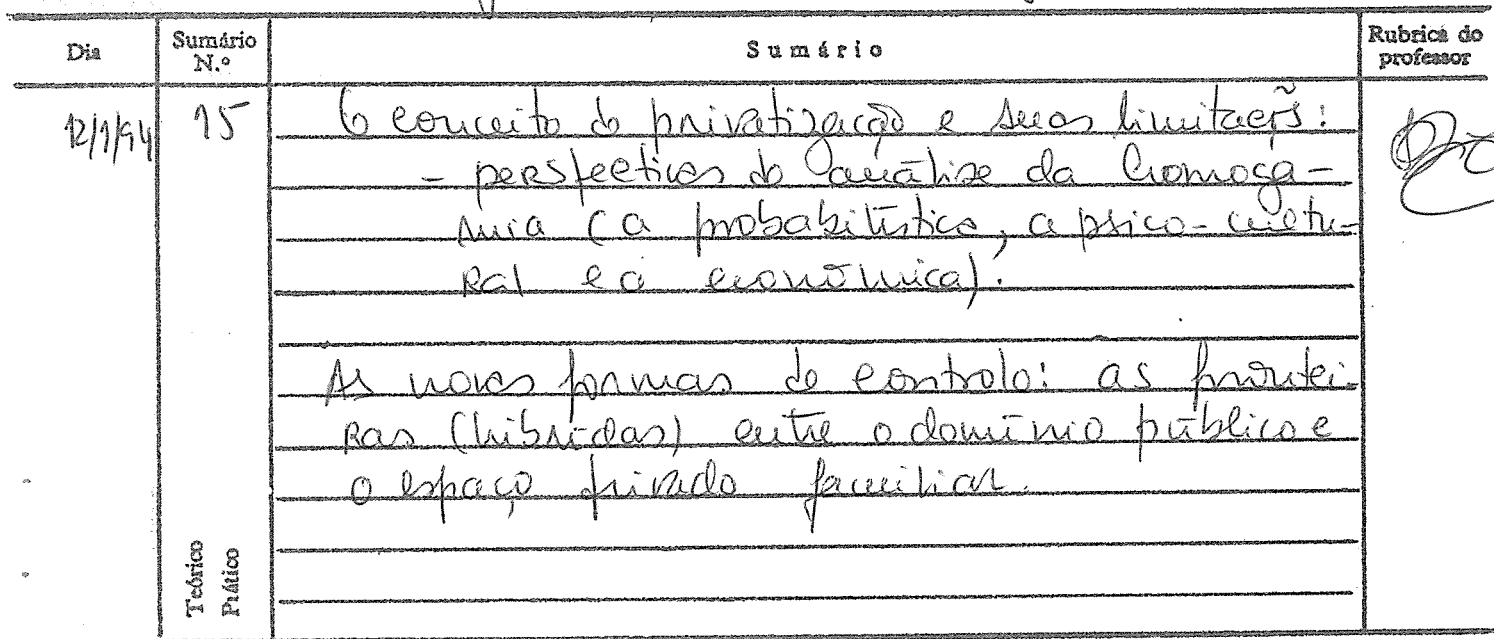 Dia Sumário N.º Sumário Rubrica do professor
12/1/94 15 O conceito de privatização e suas limitações:
- perspectivas de análise da homoga-
mia (a probabilística, a psico-cultu-
ral e a económica).
As novas formas de controlo: as frontei-
ras (híbridas) entre o domínio público e
o espaço privado familiar.
Teórico
Prático